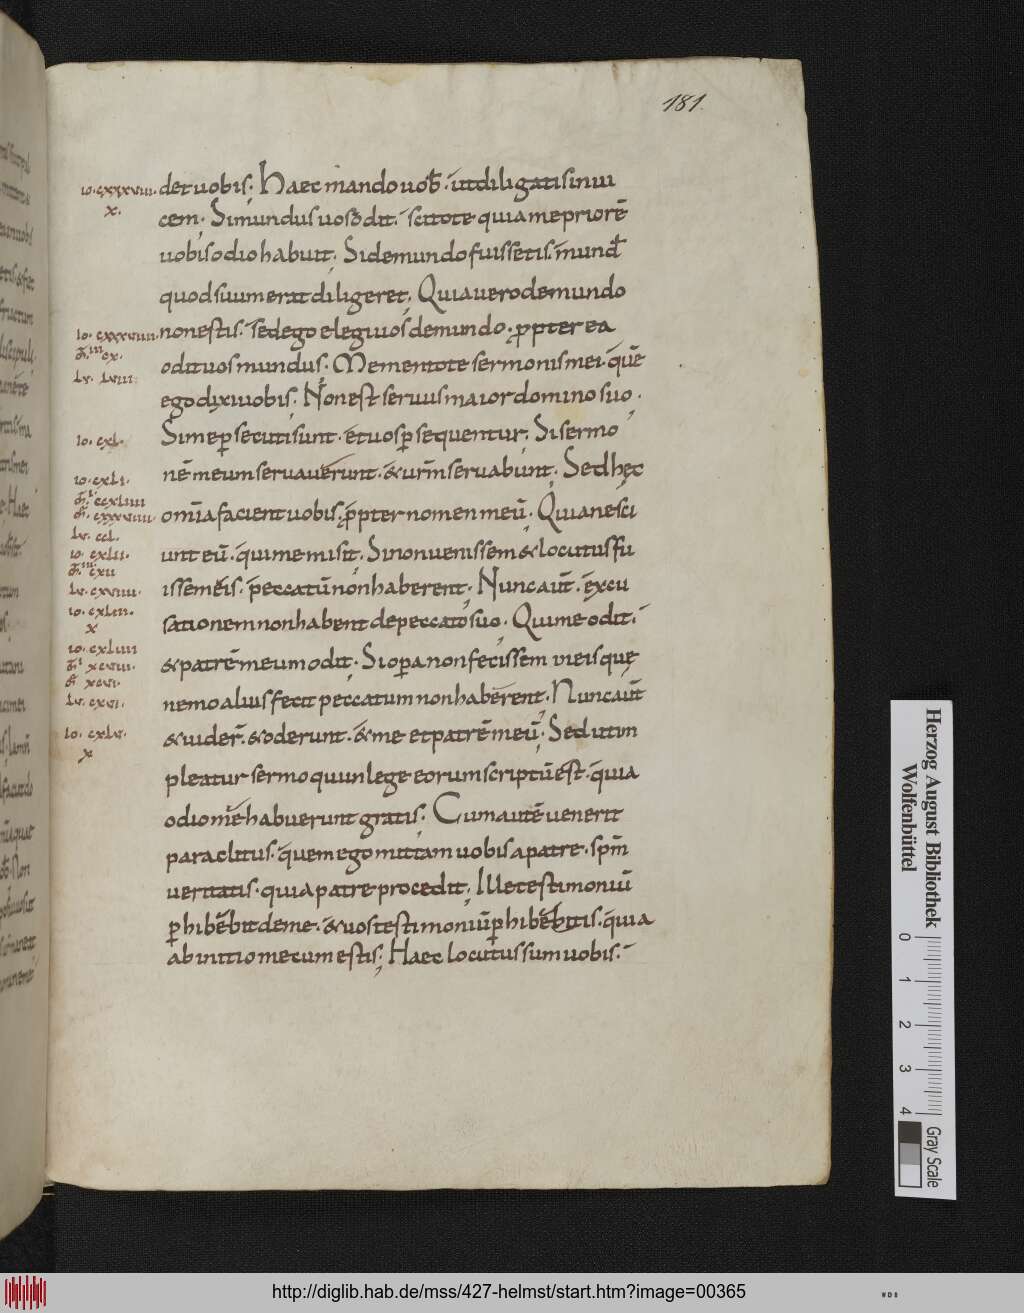 181.
io. cxxxviii.
x.
io. cxxxviiii.
mͭ. iii cx.
lv. lviii.
io. cxl.
io. cxli.
mͭ. i. ccxliiii
mͬ. cxxxviiii.
lv. ccl.
io. cxlii.
mͭ. iii. cxii
lv. cxviiii.
io. cxliii.
x
io. cxliiii
mͭ. i xcviii.
mͬ xcvi.
lv. cxvi.
io. cxlv.
x
det uobis; Haec mando uob̄. ut diligatis inui
cem. Si mundus uos odit. scitote quia me priorē
uobis odio habuit; Si de mundo fuissetis. mund'
quod suum erat diligeret; Quia uero de mundo
non estis. sed ego elegi uos de mundo. ꝓpter ea
odit uos mundus. Mementote sermonis mei. quē
ego dixi uobis; Non est seruus maior domino suo;
Si me ꝑsecuti sunt. et uos ꝑsequentur; Si sermo
nē meum seruauerunt. & ur̄m seruabunt; Sed hęc
om̄ia facient uobis ꝓpter nomen meū; Quia nesci
unt eū. qui me misit; Si non uenissem & locutus fu
issem eis. peccatū non haberent; Nunc aut̄. excu
sationem non habent de peccato suo; Qui me odit.
& patrē meum odit; Si oꝑa non fecissem in eis quę
nemo alius fecit peccatum non haberent; Nunc aut̄
& uider̄. & oderunt. & me et patrē meū; Sed ut im
pleatur sermo qui in lege eorum scriptū est. quia
odio me habuerunt gratis; Cum autē uenerit
paraclitus. quem ego mittam uobis a patre. sp̄m
ueritatis. qui a patre procedit; Ille testimoniū
ꝑhibebit de me. & uos testimoniū ꝑhibebitis. quia
ab initio mecum estis; Haec locutus sum uobis.
Herzog August Bibliothek
Wolfenbüttel
0 1 2 3 4
Gray Scale
http://diglib.hab.de/mss/427-helmst/start.htm?image=00365